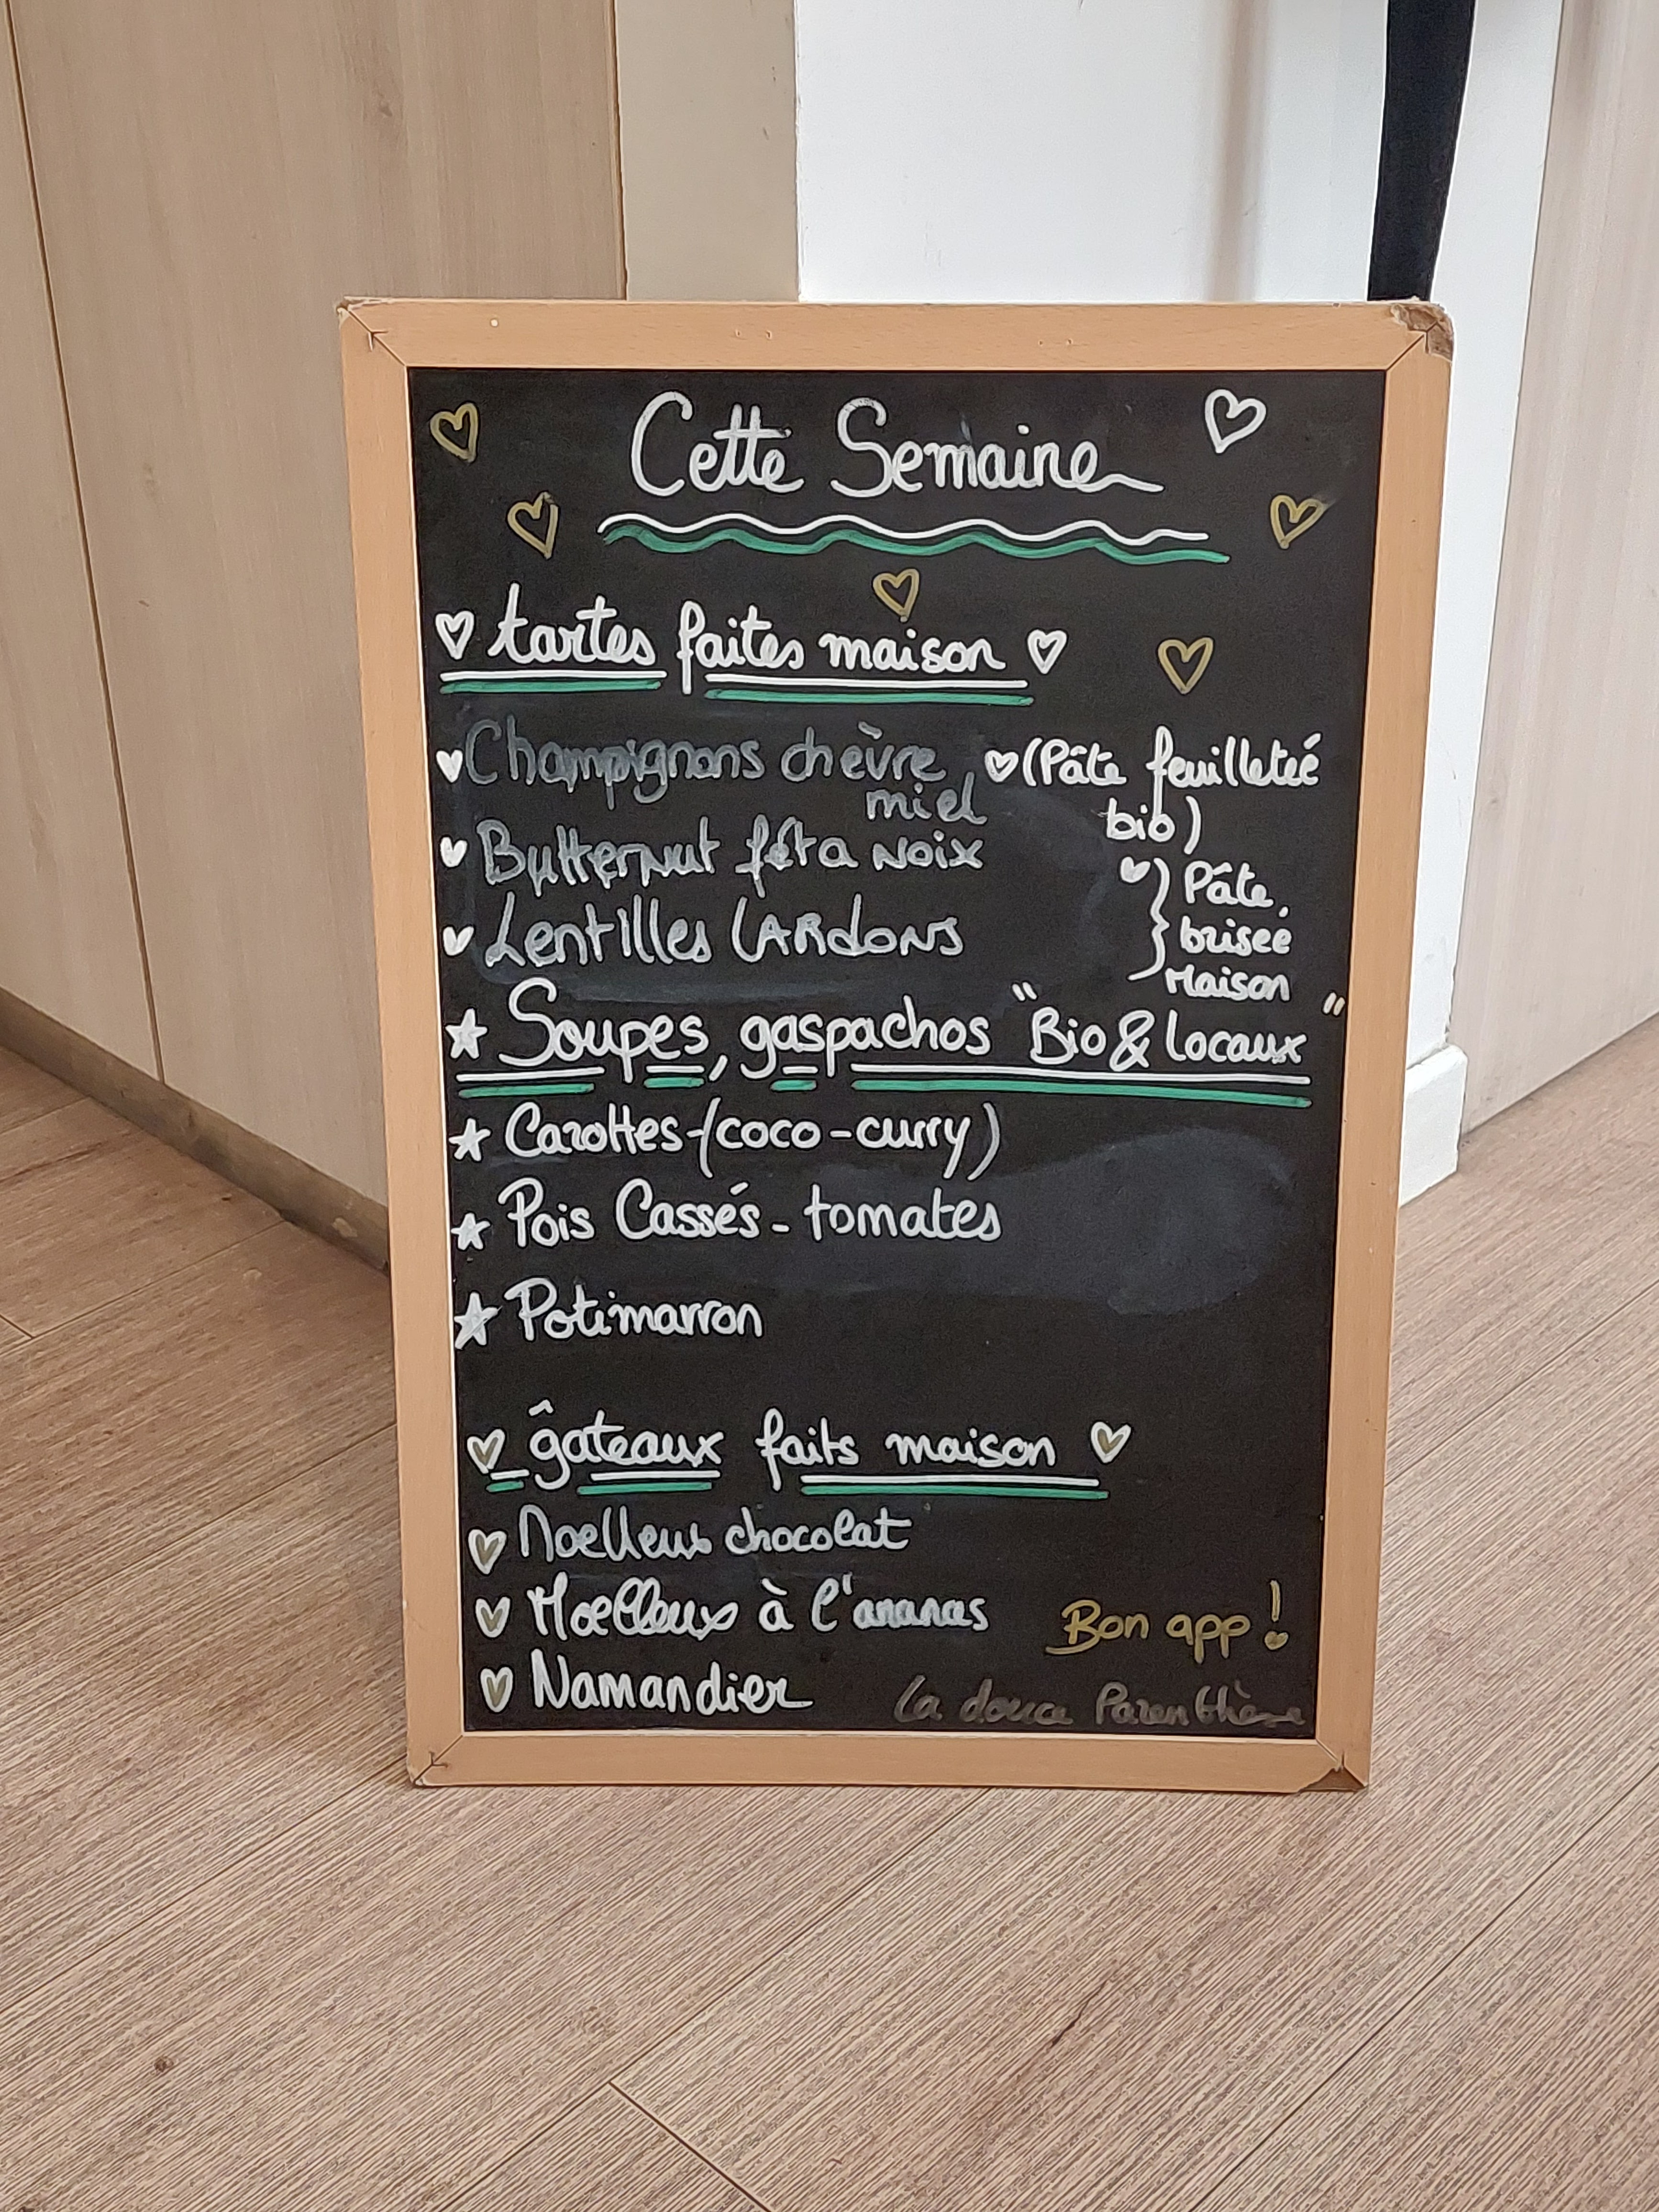 Cette Semaine
tartes faites maison
Champignons chèvre
miel
(Pâte feuilleteé
bio)
Butternut féta noix
Lentilles LARdONS
} Pâte
brisée
Maison
Soupes, gaspachos "Bio & Locaux"
Carottes-(coco-curry)
Pois Cassés - tomates
Potimarron
gâteaux faits maison
Moelleux chocolat
Moelleux à l'ananas
Namandier
Bon app!
La douce Parenthèse